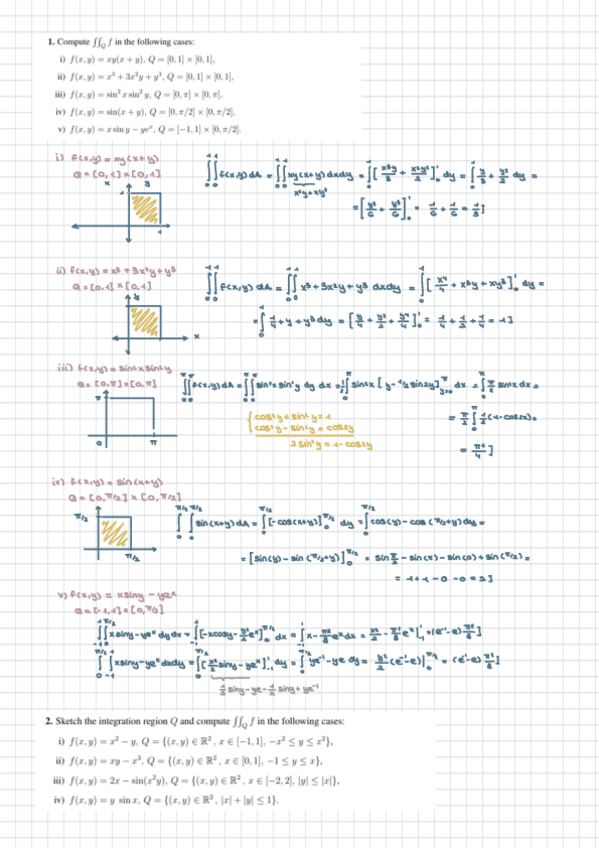 1. Compute ∬_Q f in the following cases:
i) f(x, y) = xy(x + y), Q = [0, 1] × [0, 1],
ii) f(x, y) = x³ + 3x²y + y³, Q = [0, 1] × [0, 1],
iii) f(x, y) = sin² x sin² y, Q = [0, π] × [0, π],
iv) f(x, y) = sin(x + y), Q = [0, π/2] × [0, π/2],
v) f(x, y) = x sin y − yeˣ, Q = [−1, 1] × [0, π/2].
i) f(x,y) = xy(x+y)
Q = [0,1] x [0,1]
∫₀¹∫₀¹ f(x,y) dA = ∫₀¹∫₀¹ xy(x+y) dxdy = ∫₀¹ [x³y/3 + x²y²/2]₀¹ dy = ∫₀¹ y/3 + y²/2 dy =
x²y + xy²
= [y²/6 + y³/6]₀¹ = 1/6 + 1/6 = 1/3]
x y
1
1
ii) f(x,y) = x³ + 3x²y + y³
Q = [0,1] x [0,1]
∫₀¹∫₀¹ f(x,y) dA = ∫₀¹∫₀¹ x³ + 3x²y + y³ dxdy = ∫₀¹ [x⁴/4 + x³y + xy³]₀¹ dy =
= ∫₀¹ 1/4 + y + y³ dy = [y/4 + y²/2 + y⁴/4]₀¹ = 1/4 + 1/2 + 1/4 = 1]
y
x
iii) f(x,y) = sin²x sin²y
Q = [0,π] x [0,π]
∫₀^π∫₀^π f(x,y) dA = ∫₀^π∫₀^π sin²x sin²y dy dx = ½∫₀^π sin²x [y − ½ sin2y]^π_{y=0} dx = ∫₀^π π/2 sin²x dx =
{cos²y + sin²y = 1
cos²y − sin²y = cos2y
2 sin²y = 1 − cos2y
= π/2 ∫₀^π ½ (1 − cos2x) =
= π²/4]
π
0
π
iv) f(x,y) = sin(x+y)
Q = [0,π/2] x [0,π/2]
∫₀^{π/2}∫₀^{π/2} sin(x+y) dA = ∫₀^{π/2} [−cos(x+y)]₀^{π/2} dy = ∫₀^{π/2} cos(y) − cos(π/2+y) dy =
= [sin(y) − sin(π/2+y)]₀^{π/2} = sin π/2 − sin(π) − sin(0) + sin(π/2) =
= 1 + 1 − 0 − 0 = 2]
π/2
π/2
v) f(x,y) = x siny − yeˣ
Q = [−1,1] x [0,π/2]
∫₋₁¹∫₀^{π/2} x siny − yeˣ dy dx = ∫₋₁¹ [−x cosy − y²/2 eˣ]₀^{π/2} dx = ∫₋₁¹ x − π²/8 eˣ dx = x²/2 − π²/8 eˣ |₋₁¹ = (e⁻¹ − e) π²/8]
∫₀^{π/2}∫₋₁¹ x siny − yeˣ dxdy = ∫₀^{π/2} [x²/2 siny − yeˣ]₋₁¹ dy = ∫₀^{π/2} ye⁻¹ − ye dy = y²/2 (e⁻¹ − e) |₀^{π/2} = (e⁻¹ − e) π²/8]
½ siny − ye − ½ siny + ye⁻¹
2. Sketch the integration region Q and compute ∬_Q f in the following cases:
i) f(x, y) = x² − y, Q = {(x, y) ∈ ℝ², x ∈ [−1, 1], −x² ≤ y ≤ x²},
ii) f(x, y) = xy − x³, Q = {(x, y) ∈ ℝ², x ∈ [0, 1], −1 ≤ y ≤ x},
iii) f(x, y) = 2x − sin(x²y), Q = {(x, y) ∈ ℝ², x ∈ [−2, 2], |y| ≤ |x|},
iv) f(x, y) = y sin x, Q = {(x, y) ∈ ℝ², |x| + |y| ≤ 1}.